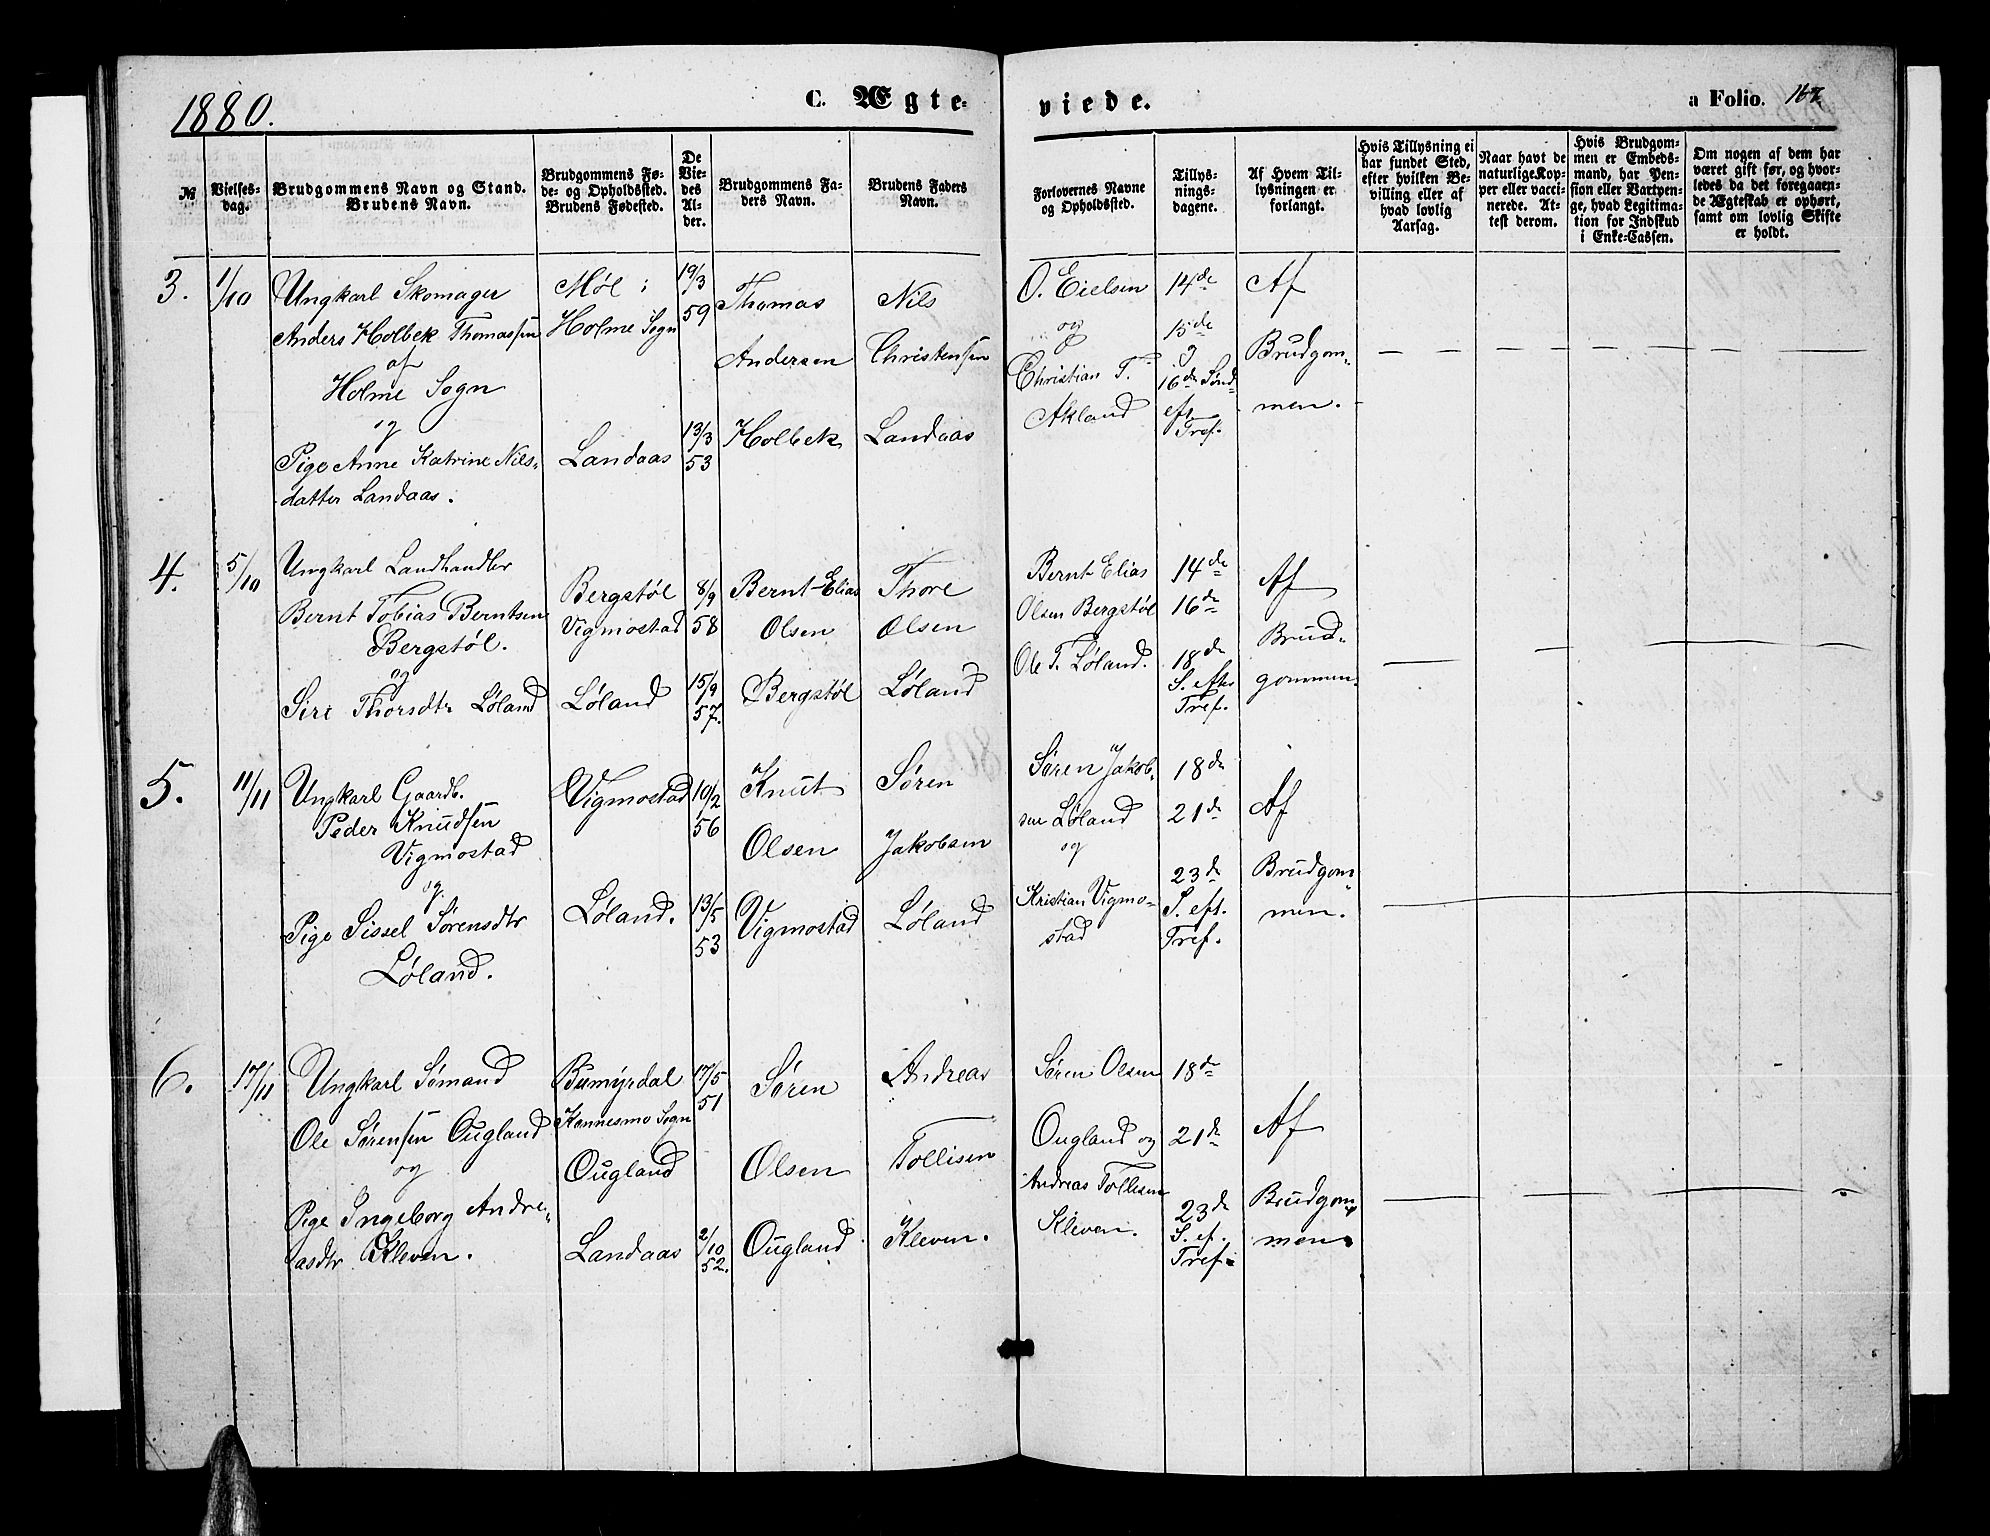 1880.
C. Ægte-
viede.
a Folio. 167
№
Vielses-
dag.
Brudgommens Navn og Stand.
Brudens Navn.
Brudgommens Fø-
de- og Opholdssted.
Brudens Fødested.
De
Vie-
des
Al-
der.
Brudgommens Fa-
ders Navn.
Brudens Faders
Navn.
Forlovernes Navne
og Opholdssted.
Tillys-
nings-
dagene.
Af Hvem Til-
lysningen er
forlangt.
Hvis Tillysning ei
har fundet Sted,
efter hvilken Be-
villing eller af
hvad lovlig
Aarsag.
Naar havt de
naturlige Kop-
per eller vacci-
nerede. At-
test derom.
Hvis Brudgom-
men er Embeds-
mand, har Pen-
sion eller Vartpen-
ge, hvad Legitima-
tion for Indskud
i Enke-Cassen.
Om nogen af dem har
været gift før, og hvor-
ledes da det foregaaen-
de Ægteskab er ophørt,
samt om lovlig Skifte
er holdt.
3.
1/10
Ungkarl Skomager
Anders Holbek Thomassen
af
Holme Sogn
og
Pige Anne Katrine Nils-
datter Landaas.
Møl:
Holme Sogn
Landaas
19/3
59
13/3
53
Thomas
Andersen
Holbek
Nils
Christensen
Landaas
O. Eielsen
og
Christian T.
Akland
14de
15de
og
16de Sønd
eft.
Tref.
Af
Brudgom-
men.
4.
5/10
Ungkarl Landhandler
Bernt Tobias Berntsen
Bergstøl.
og
Siri Thorsdtr Løland
Bergstøl
Vigmostad
Løland
8/9
58
15/9
57.
Bernt Elias
Olsen
Bergstøl
Thore
Olsen
Løland
Bernt Elias
Olsen Bergstøl
Ole T. Løland.
14de
16de
18de
S. efts
Tref.
Af
Brud-
gommen.
5.
11/11
Ungkarl Gaardb.
Peder Knudsen
Vigmostad
og
Pige Sissel Sørensdtr
Løland.
Vigmostad
Løland.
10/2
56
13/5
53
Knut
Olsen
Vigmostad
Søren
Jakobsen
Løland
Søren Jakob-
sen Løland
og
Kristian Vigmo-
stad
18de
21de
23de
S. eft.
Tref.
Af
Brudgom-
men.
6.
17/11
Ungkarl Sømand
Ole Sørensen Ougland
og
Pige Ingeborg Andre-
asdtr Kleven.
Bumyrdal
Kannesmo Sogn
Ougland
Landaas
17/5
51
2/10
52.
Søren
Olsen
Ougland
Andreas
Tollisen
Kleven.
Søren Olsen
Ougland og
Andreas Tollisen
Kleven.
18de
21de
23de
S. ef.
Tref.
Af
Brudgom-
men.